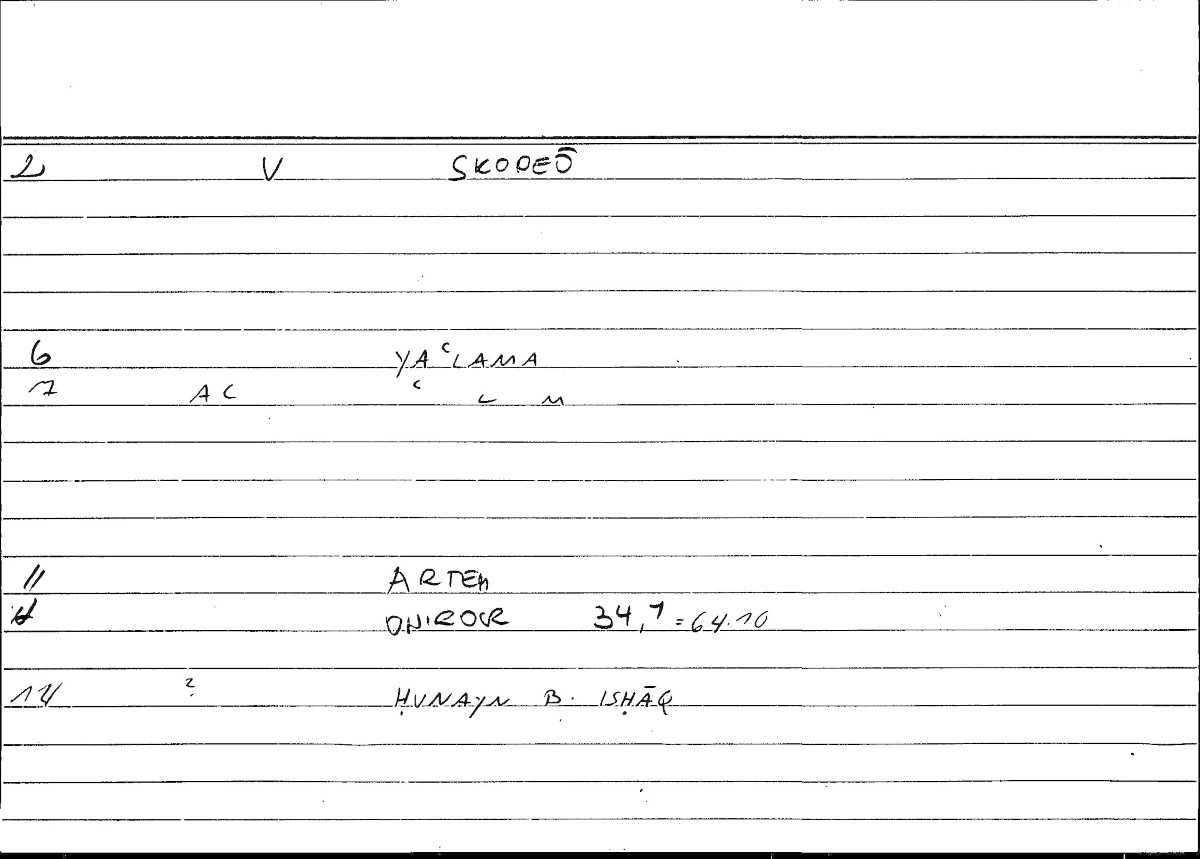 2 V SKOPEŌ
6 YAʿLAMA
7 AC ʿ L M
11 ARTEM
ONIROCR 34,7 = 64.10
14 ? ḤUNAYN B. ISḤĀQ